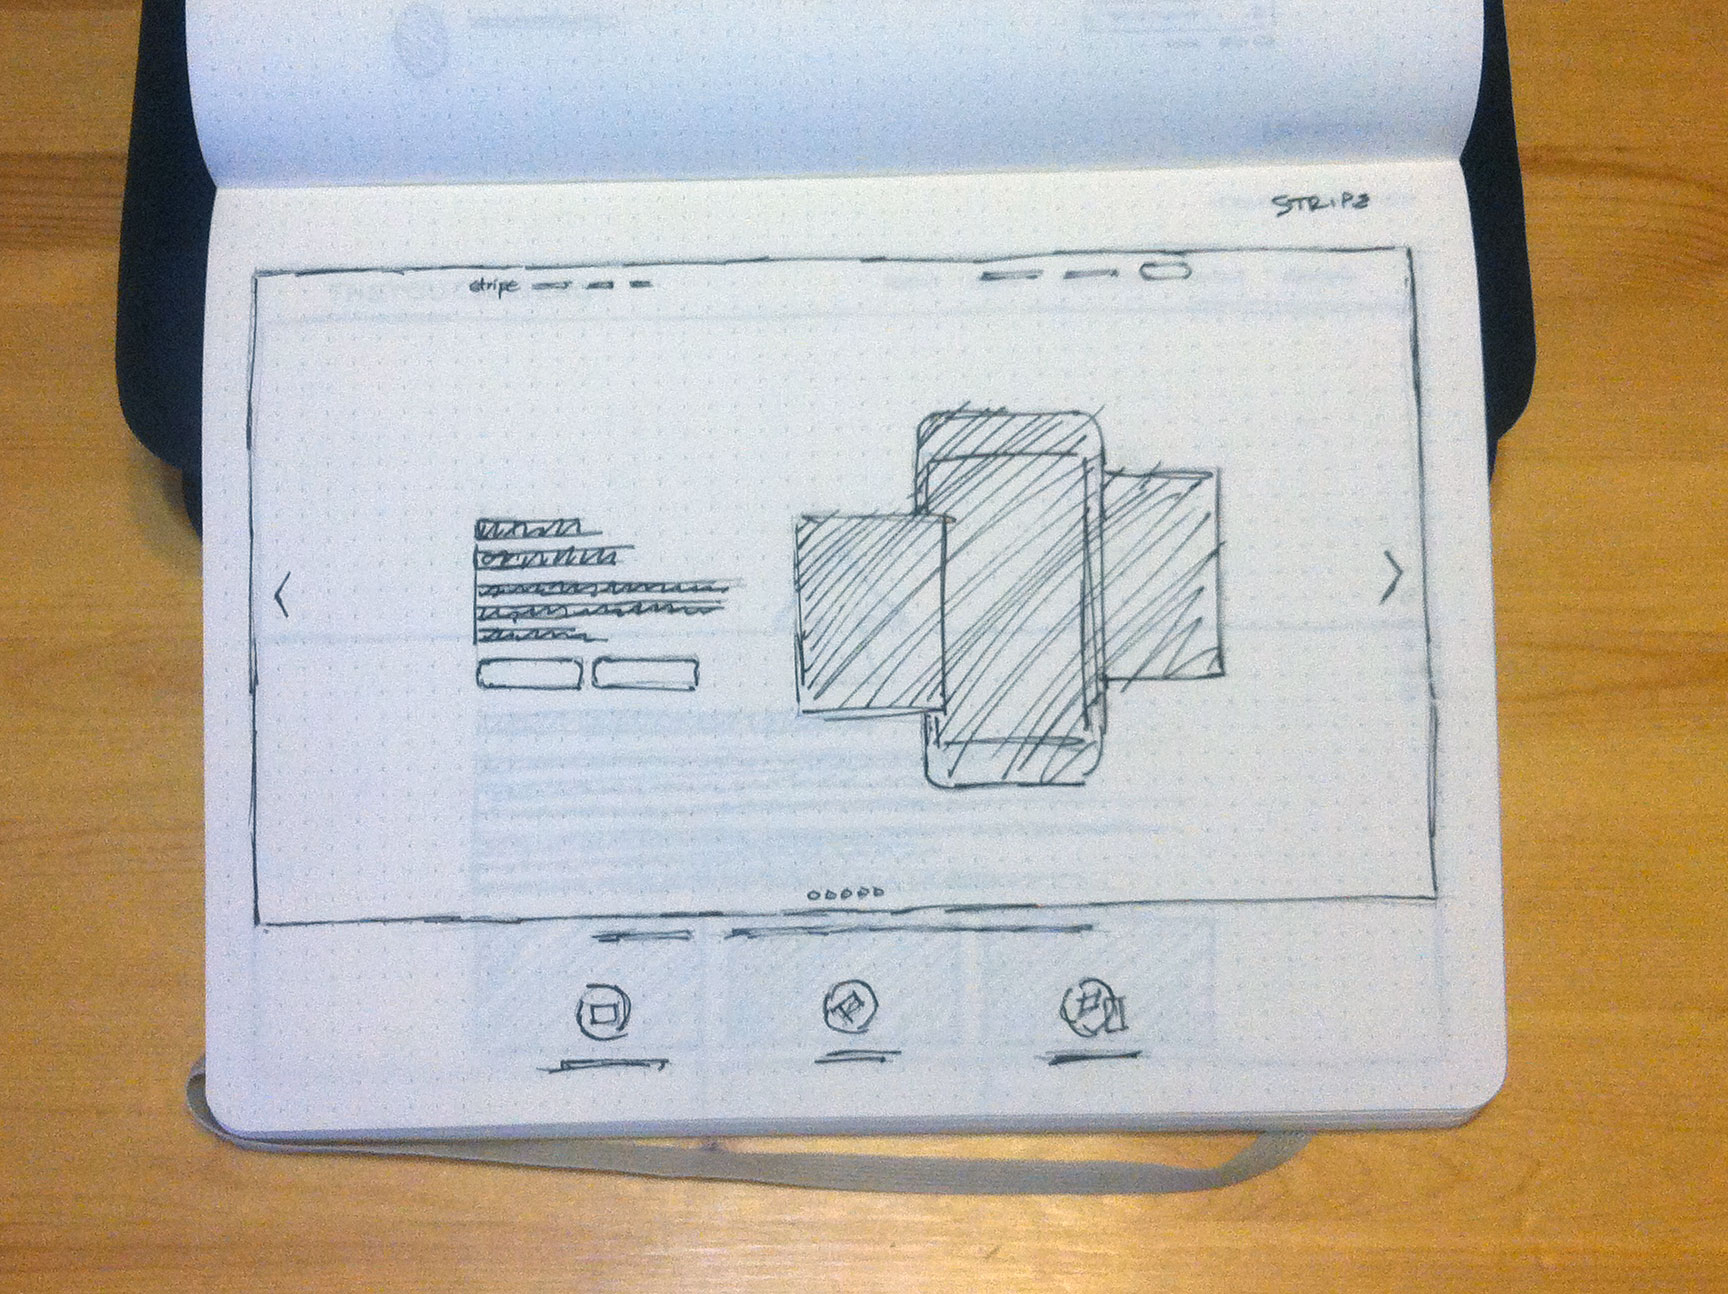 STRIPE
stripe